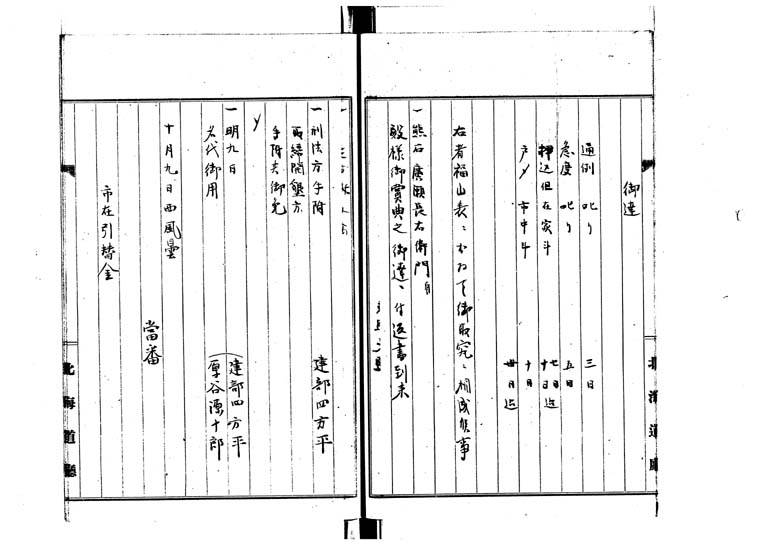 御達
通例 叱り 三日
急度 叱り 五日
押込但在家斗 七日 十日迄
戸〆 市中斗 十日 廿日迄
右者福山表ニおゐて御取究ニ相成候事
一熊石 廣瀬長右衛門
殿様御賞典之御達、付返書到来
一刑法方手附 建部四方平
西緑開墾方
手附夫御免
〆
一明九日 建部四方平
名代御用 厚谷源十郎
十月九日西風曇
當番
市在引替金
北海道廳
北海道廳